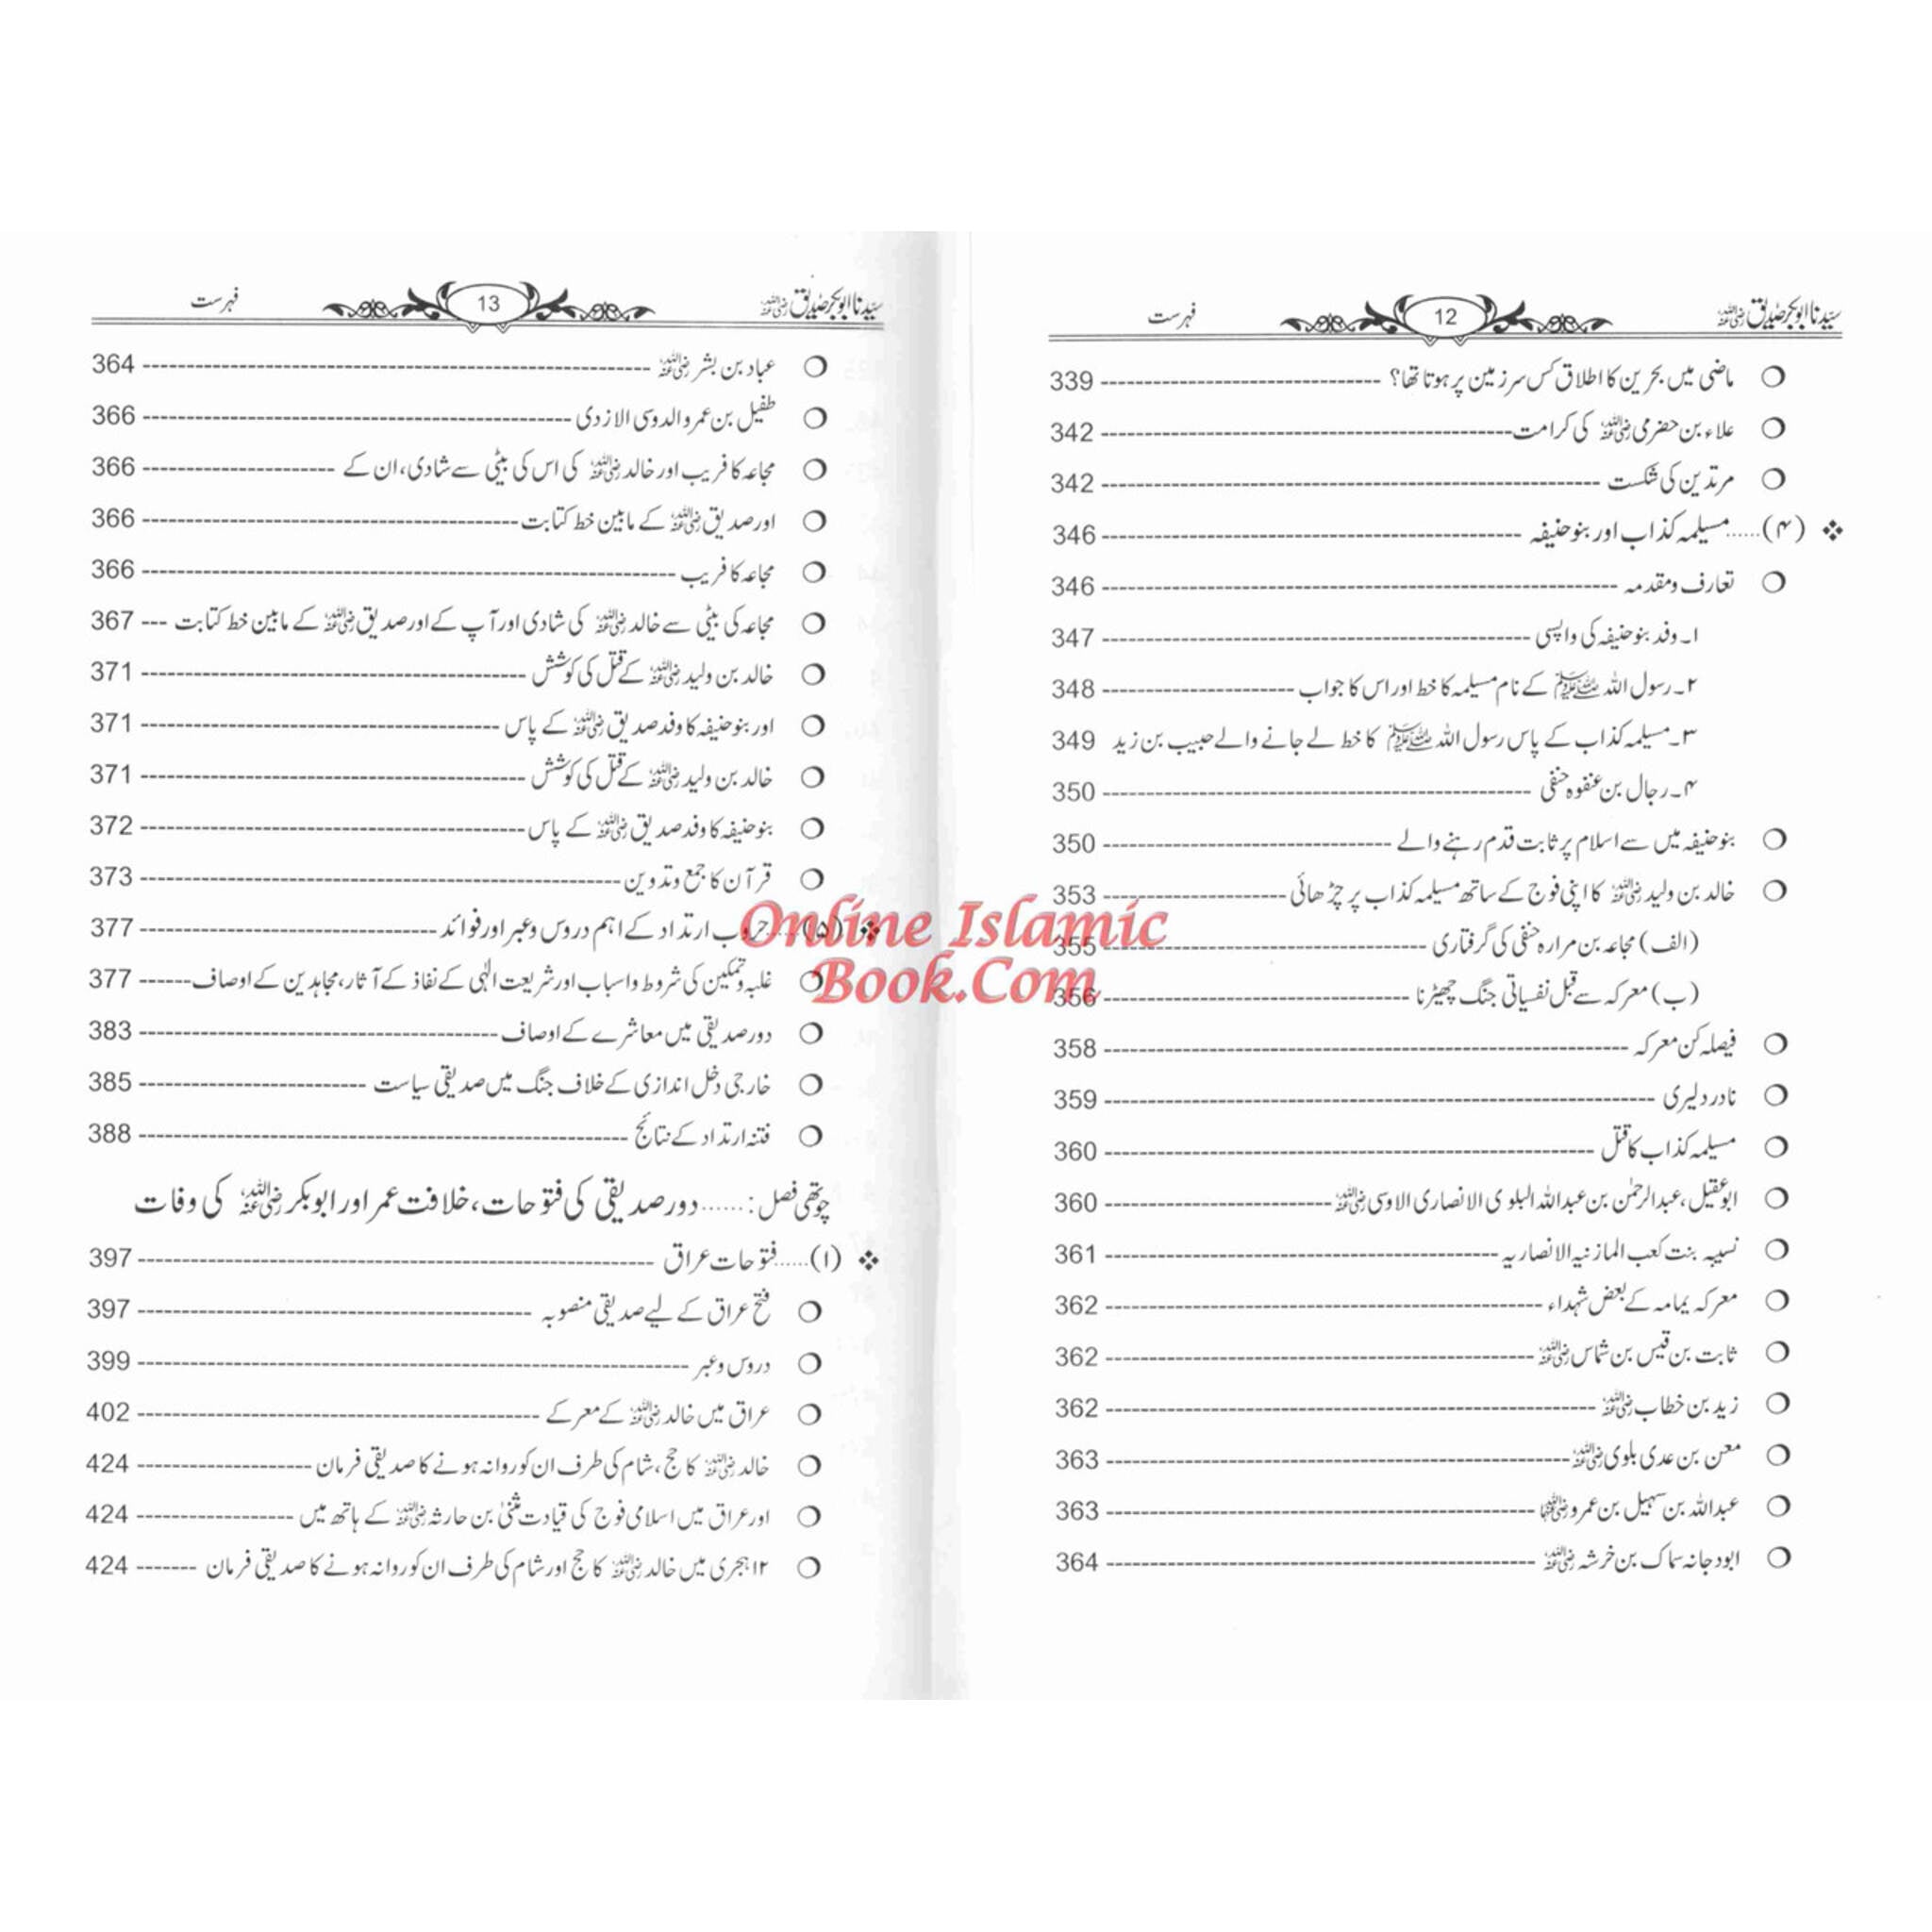 سیّدنا ابوبکر صدیق رضی اللہ عنہ 12 فہرست
ماضی میں بحرین کا اطلاق کس سرزمین پر ہوتا تھا؟ 339
علاء بن حضرمی رضی اللہ عنہ کی کرامت 342
مرتدین کی شکست 342
(۴)......مسیلمہ کذاب اور بنو حنیفہ 346
تعارف و مقدمہ 346
۱۔ وفد بنو حنیفہ کی واپسی 347
۲۔ رسول اللہ ﷺ کے نام مسیلمہ کا خط اور اس کا جواب 348
۳۔ مسیلمہ کذاب کے پاس رسول اللہ ﷺ کا خط لے جانے والے حبیب بن زید 349
۴۔ رجال بن عنفوہ حنفی 350
بنو حنیفہ میں سے اسلام پر ثابت قدم رہنے والے 350
خالد بن ولید رضی اللہ عنہ کا اپنی فوج کے ساتھ مسیلمہ کذاب پر چڑھائی 353
(الف) مجاعہ بن مرارہ حنفی کی گرفتاری 355
(ب) معرکہ سے قبل نفسیاتی جنگ چھیڑنا 356
فیصلہ کن معرکہ 358
نادر دلیری 359
مسیلمہ کذاب کا قتل 360
ابو عقیل، عبدالرحمٰن بن عبداللہ البلوی الانصاری الاوسی رضی اللہ عنہ 360
نسیبہ بنت کعب المازنیہ الانصاریہ 361
معرکہ یمامہ کے بعض شہداء 362
ثابت بن قیس بن شماس رضی اللہ عنہ 362
زید بن خطاب رضی اللہ عنہ 362
معن بن عدی بلوی رضی اللہ عنہ 363
عبداللہ بن سہیل بن عمرو رضی اللہ عنہما 363
ابودجانہ سماک بن خرشہ رضی اللہ عنہ 364
سیّدنا ابوبکر صدیق رضی اللہ عنہ 13 فہرست
عباد بن بشر رضی اللہ عنہ 364
طفیل بن عمرو الدوسی الازدی 366
مجاعہ کا فریب اور خالد رضی اللہ عنہ کی اس کی بیٹی سے شادی، ان کے 366
اور صدیق رضی اللہ عنہ کے مابین خط کتابت 366
مجاعہ کا فریب 366
مجاعہ کی بیٹی سے خالد رضی اللہ عنہ کی شادی اور آپ کے اور صدیق رضی اللہ عنہ کے مابین خط کتابت 367
خالد بن ولید رضی اللہ عنہ کے قتل کی کوشش 371
اور بنو حنیفہ کا وفد صدیق رضی اللہ عنہ کے پاس 371
خالد بن ولید رضی اللہ عنہ کے قتل کی کوشش 371
بنو حنیفہ کا وفد صدیق رضی اللہ عنہ کے پاس 372
قرآن کا جمع و تدوین 373
(۵)......حروب ارتداد کے اہم دروس و عبر اور فوائد 377
غلبہ و تمکین کی شروط و اسباب اور شریعت الٰہی کے نفاذ کے آثار، مجاہدین کے اوصاف 377
دور صدیقی میں معاشرے کے اوصاف 383
خارجی دخل اندازی کے خلاف جنگ میں صدیقی سیاست 385
فتنہ ارتداد کے نتائج 388
چوتھی فصل:......دور صدیقی کی فتوحات، خلافت عمر اور ابوبکر رضی اللہ عنہ کی وفات
(۱)......فتوحات عراق 397
فتح عراق کے لیے صدیقی منصوبہ 397
دروس و عبر 399
عراق میں خالد رضی اللہ عنہ کے معرکے 402
خالد رضی اللہ عنہ کا حج، شام کی طرف ان کو روانہ ہونے کا صدیقی فرمان 424
اور عراق میں اسلامی فوج کی قیادت مثنیٰ بن حارثہ رضی اللہ عنہ کے ہاتھ میں 424
۱۲ ہجری میں خالد رضی اللہ عنہ کا حج اور شام کی طرف ان کو روانہ ہونے کا صدیقی فرمان 424
Online Islamic
Book.Com